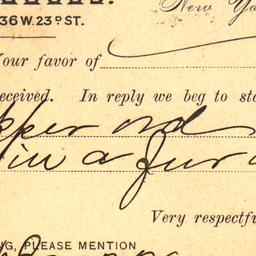 36 W. 23D ST.
New Yo
Your favor of
eceived. In reply we beg to sta
pper ord
in a fur
Very respectfu
NG, PLEASE MENTION